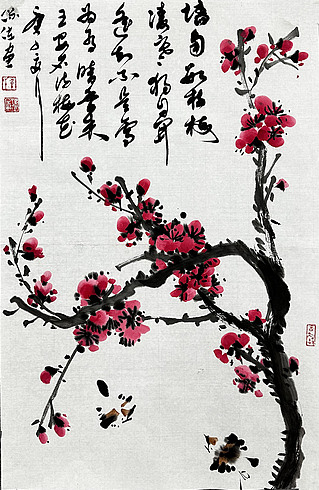 墙角数枝梅
凌寒独自開
遥知不是雪
为有暗香来
王安石诗梅花
庚子
画